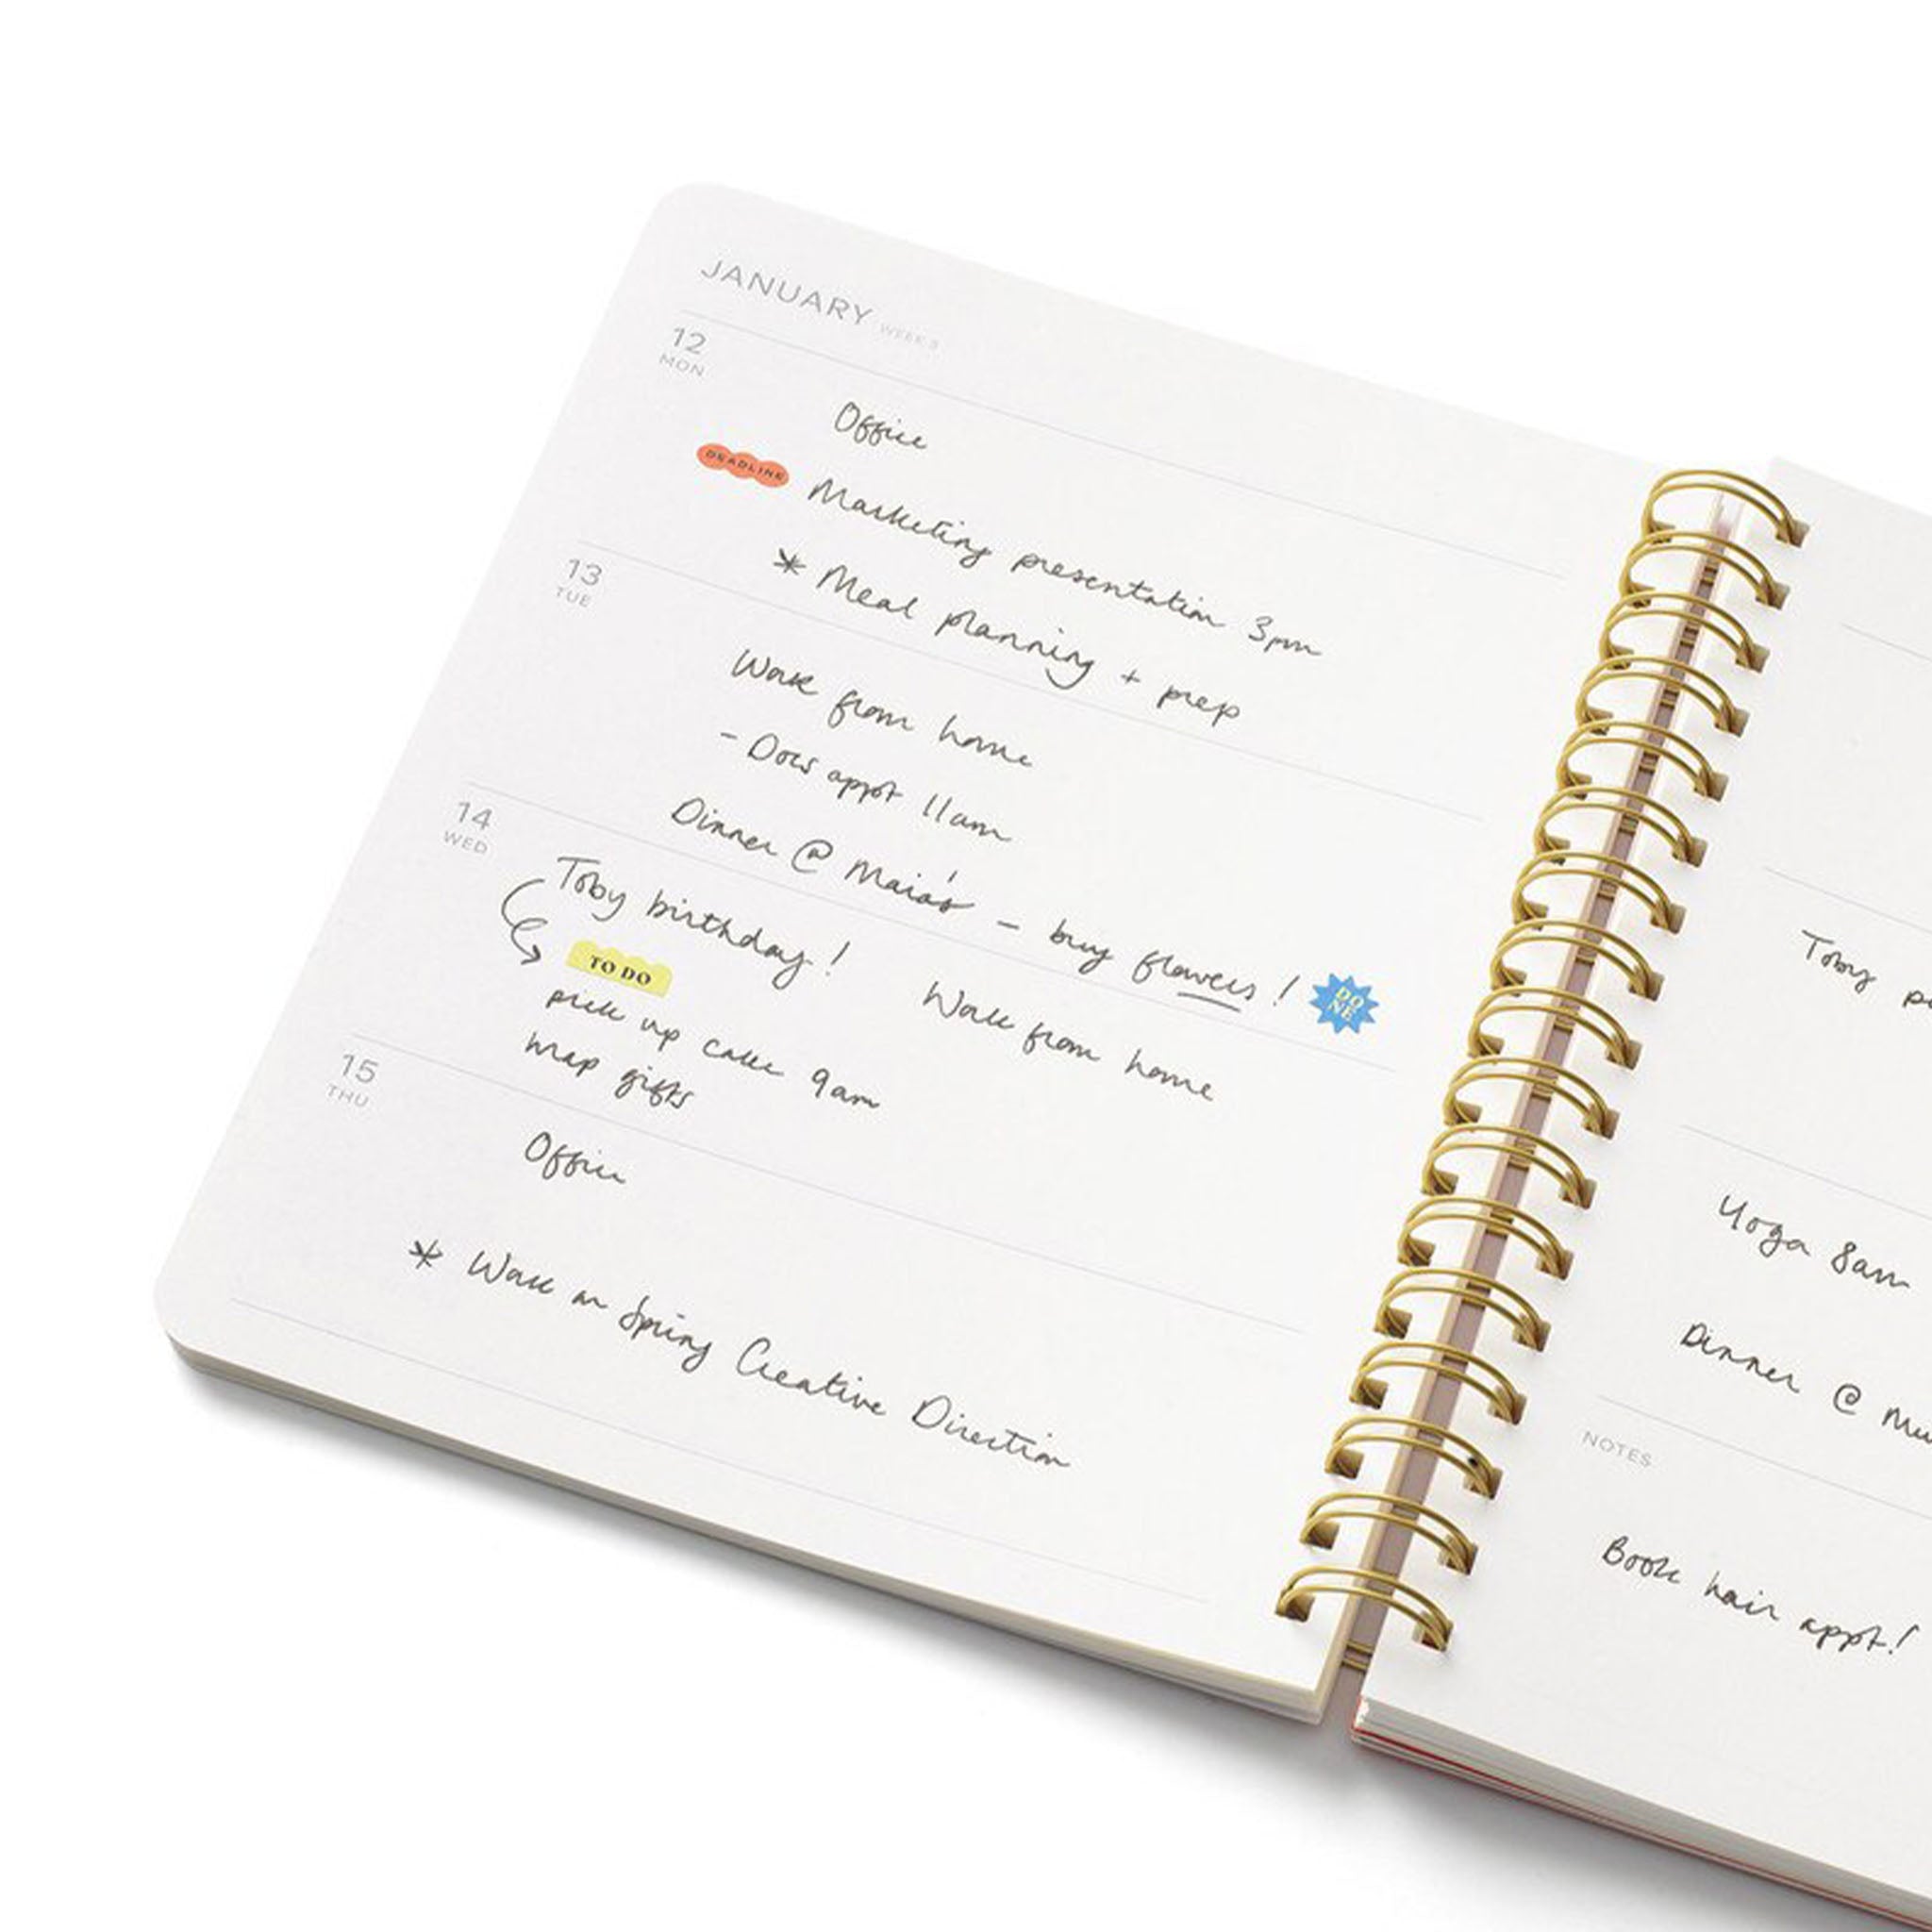 JANUARY WEEK 3
12
MON
Office
DEADLINE Marketing presentation 3pm
* Meal planning + prep
13
TUE
Work from home
- Docs appt 11am
Dinner @ Maia's - buy flowers!
DO
NE
14
WED
Toby birthday! Work from home
TO DO
pick up cake 9am
wrap gifts
15
THU
Office
* Work on Spring Creative Direction
Toby
Yoga 8am
Dinner @ Mu
NOTES
Book hair appt!